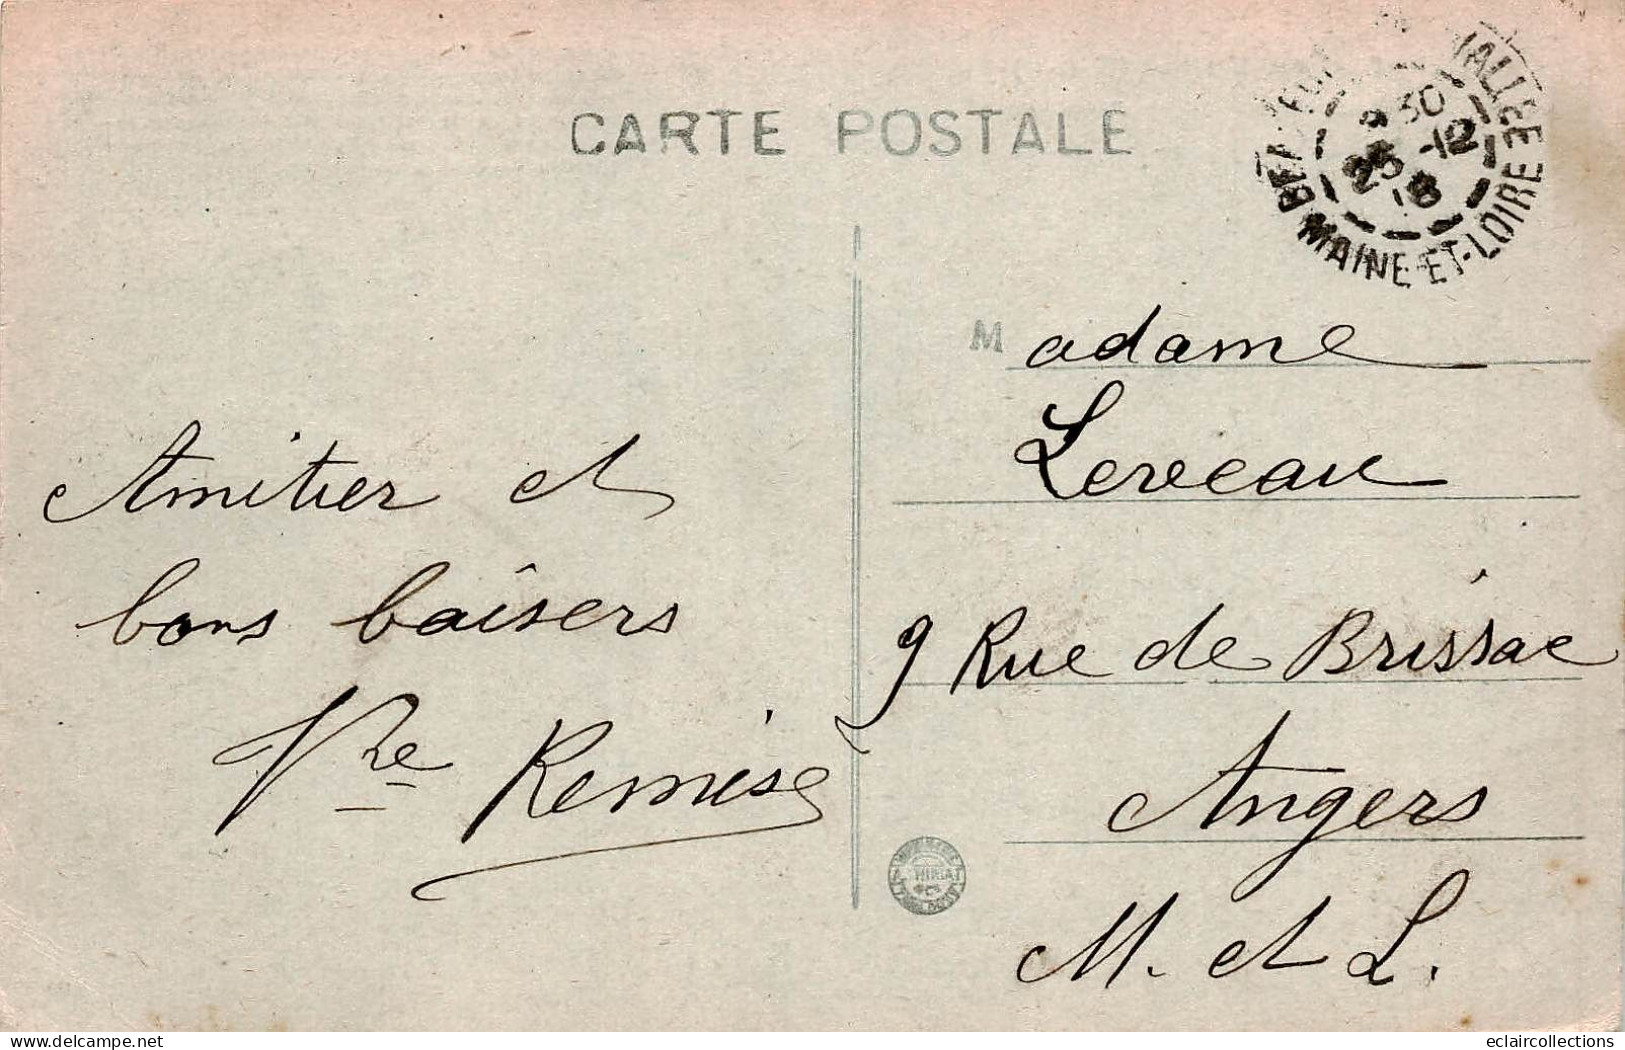 CARTE POSTALE
VALLEE
MAINE-ET-LOIRE
30
25 -12
18
Amitier et
bons baisers
Vve Remise
Madame
Leveau
9 Rue de Brissac
Angers
M. et L.
delcampe.net
eclaircollections